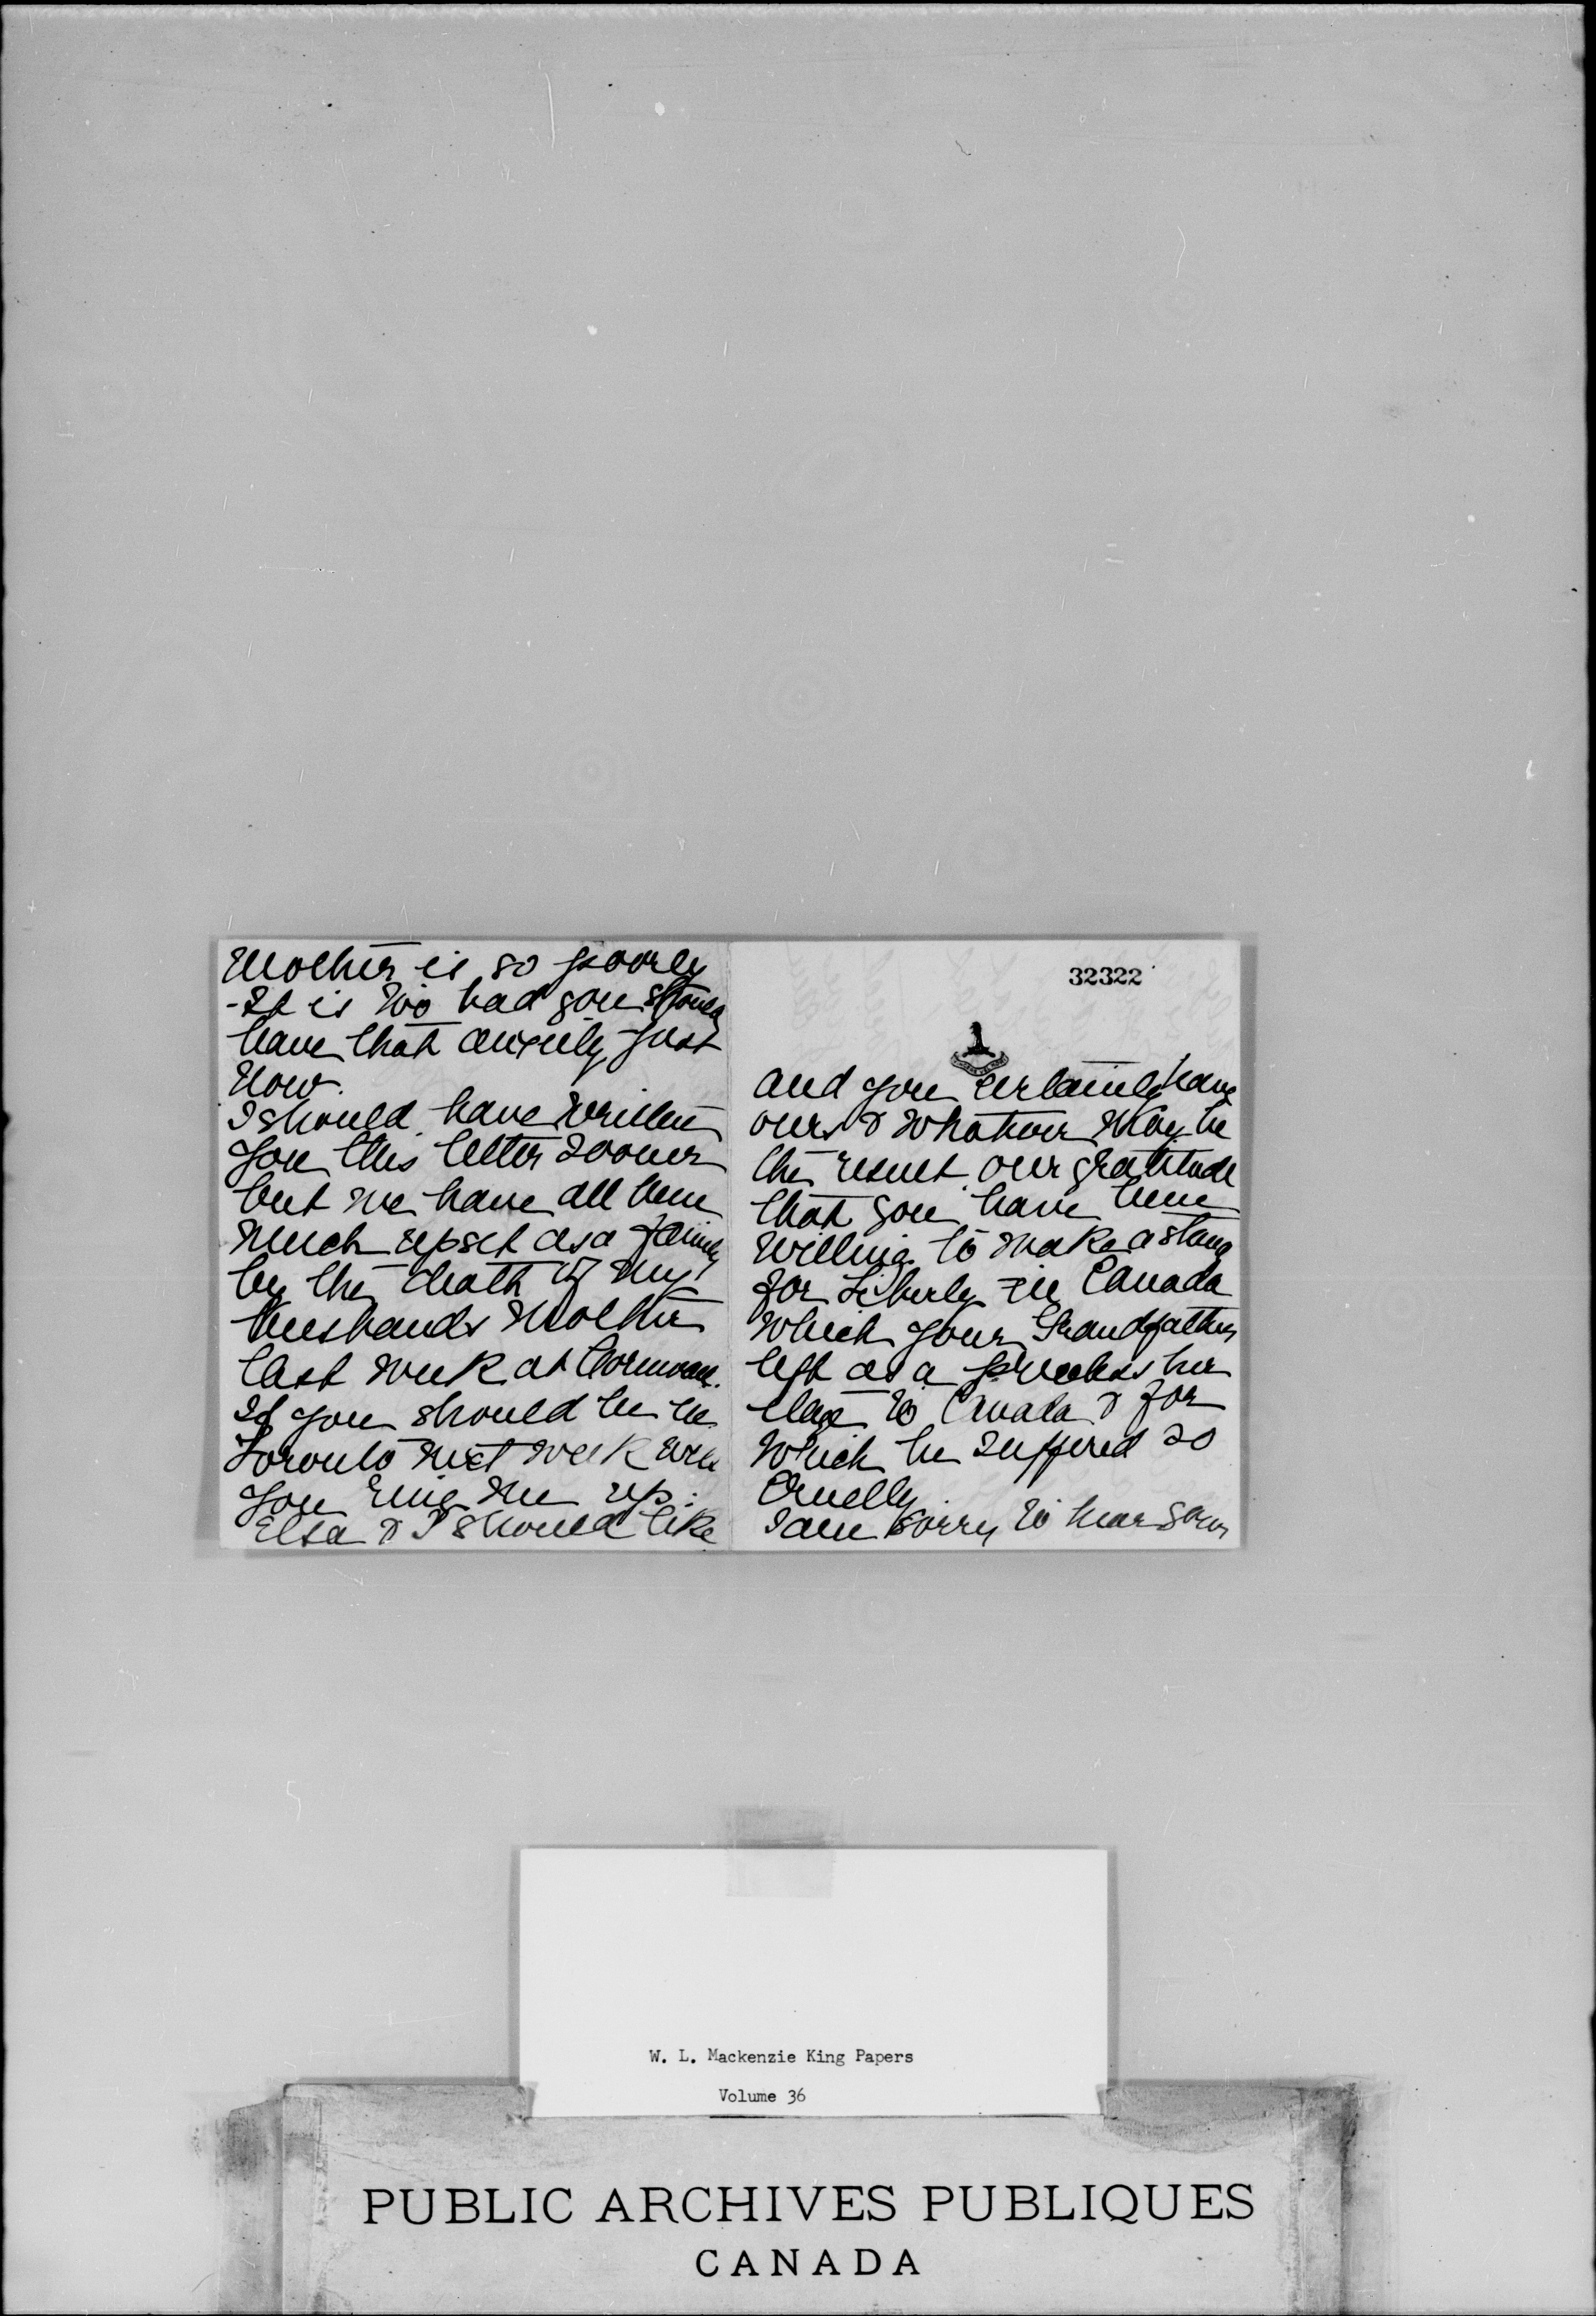 Mother is so poorly
- It is too bad you should
have that anxiety just
now.
I should have written
you this letter sooner
but we have all been
much upset as a family
by the death of my
husbands mother
last week at Cornwall.
If you should be in
Toronto next week will
you ring me up:
Elsa & I should like
32322
and you certainly have
ours & whatever may be
the result our gratitude
that you have been
willing to make a stand
for Liberty in Canada
which your Grandfather
left as a priceless her
itage to Canada & for
which he suffered so
cruelly.
I am sorry to hear your
W. L. Mackenzie King Papers
Volume 36
PUBLIC ARCHIVES PUBLIQUES
CANADA